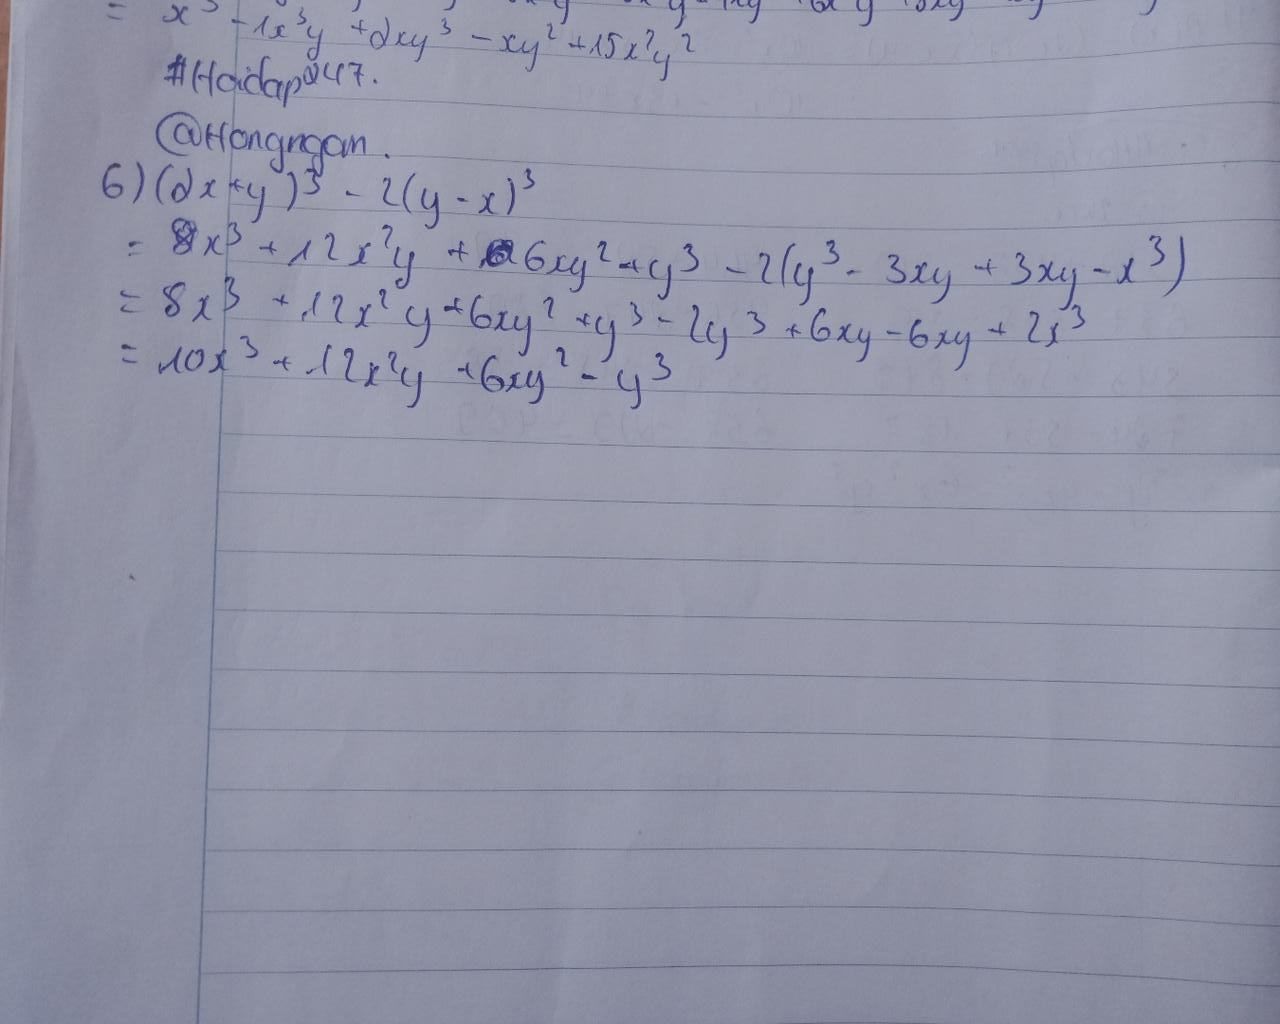 = x³ - 1x³y + 2xy³ - xy² + 15x²y²
#Hoidap247.
@Hongngan.
6) (2x+y)³ - 2(y-x)³
= 8x³ + 12x²y + 6xy² + y³ - 2(y³ - 3xy + 3xy - x³)
= 8x³ + 12x²y + 6xy² + y³ - 2y³ + 6xy - 6xy + 2x³
= 10x³ + 12x²y + 6xy² - y³